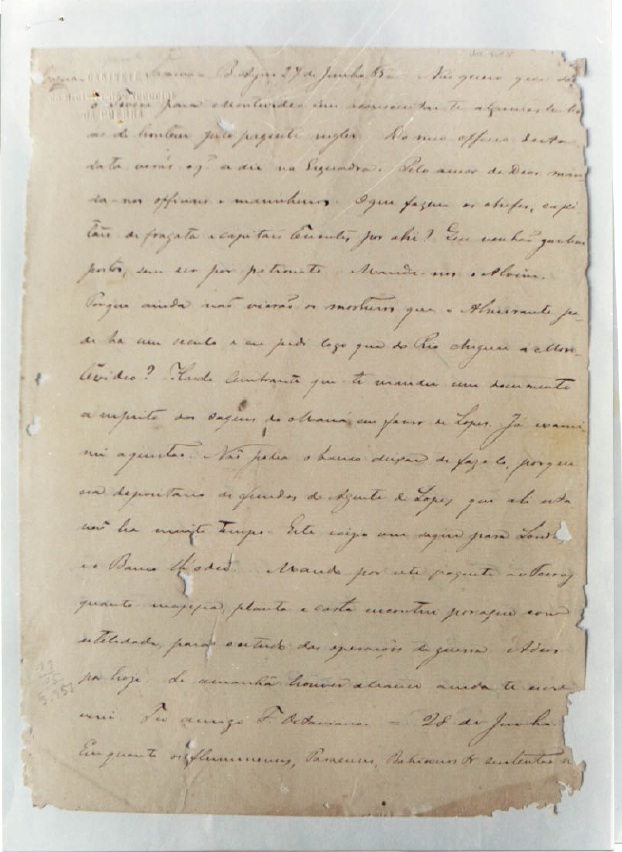 B. Ayres 27 de Junho 65 — Não quero que
o vapor para Montevideo sem accrescentar-te algumas
as de hontem pelo paquete inglez. Do meu officio desta
data verás o q' ha dia na Esquadra. Pelo amor de Deos man
da-nos officiaes e marinheiros. O que fazem os chefes, capi
tães de fragata e capitães tenentes por ahi? Eu venhão ganhar
postos, sem ser por patronato. Mande-nos o Alvim.
Porque ainda não vierão os morteiros que o Almirante pe-
de ha um seculo e eu pedi logo que do Rio cheguei a Mon-
tevideo? Has de lembrar-te que te mandei um documento
a respeito dos saques do Mauá em favor de Lopez. Já exami
nei a questão. Não podia o banco deixar de fazel-o, porque
era depositario de fundos do Agente de Lopez que ali está
não ha muito tempo. Este exigio um saque para Lond
e o Banco Mando por este paquete ao
quanto mappa, planta e carta encontrei por aqui com
utilidade, para o estudo das operações de guerra. Adeos
por hoje. Se amanhã houver ainda te escre
verei. Teu amigo F. Octaviano — 28 de Junho
Emquanto os fluminenses, Paraenses, Bahianos &